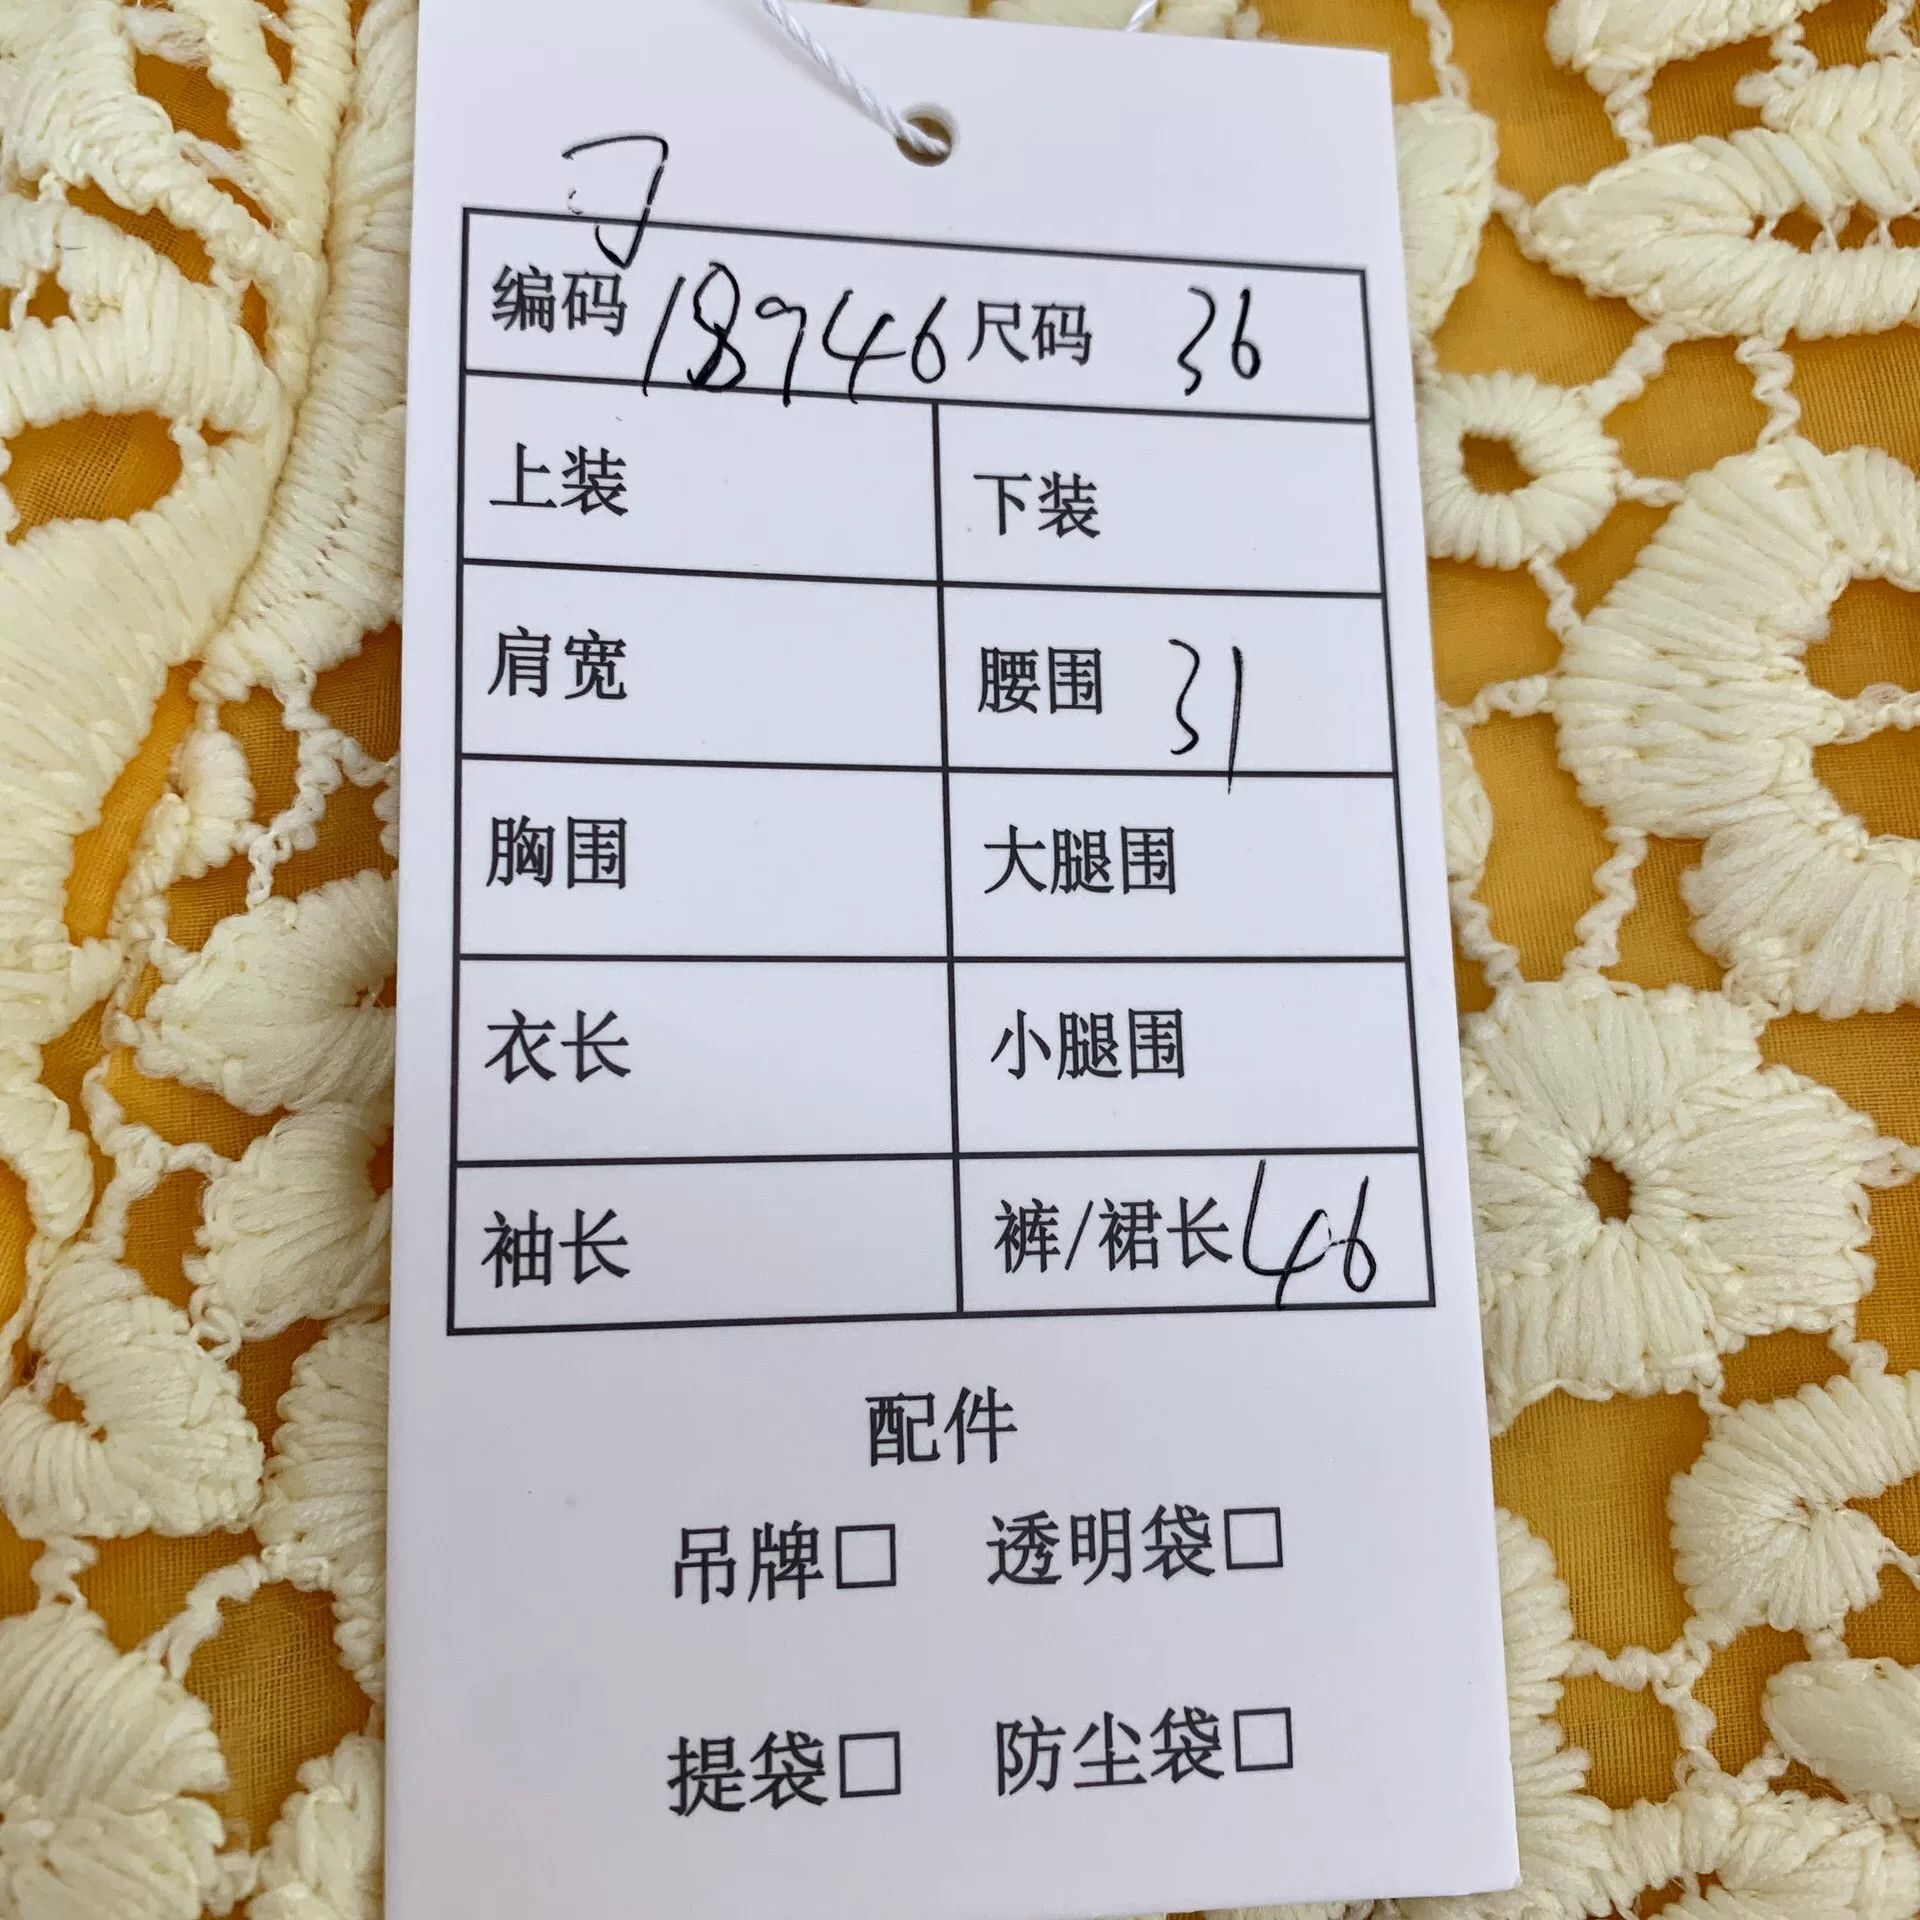 编码 18946 尺码 36
上装 下装
肩宽 腰围 31
胸围 大腿围
衣长 小腿围
袖长 裤/裙长 46
配件
吊牌□ 透明袋□
提袋□ 防尘袋□